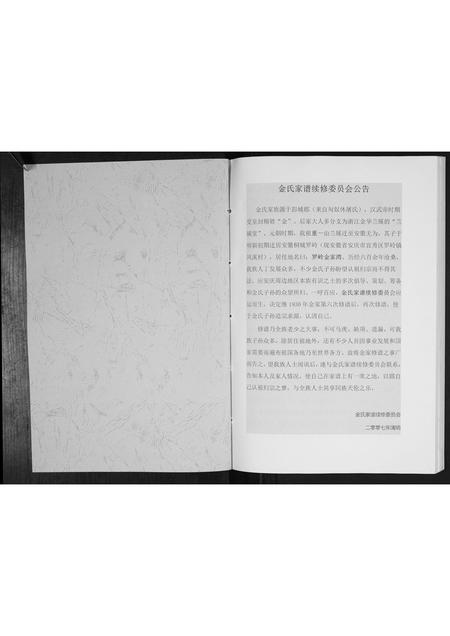 金氏家谱续修委员会公告
金氏家族源于彭城郡（来自匈奴休屠氏），汉武帝时期
度皇封赐姓“金”。后家大人多分支为浙江金华兰溪的“兰
城堂”。元朝时期，我祖重一山兰溪迁至安徽无为，其子于
明新初期迁居安徽桐城罗岭（现安徽省安庆市宜秀区罗岭镇
凤溪村），居住地名曰：罗岭金家湾。历经六百余年沧桑，
我族人丁发展众多，不少金氏子孙盼望认祖归宗而不得其
法，应安庆周边地区本族有识之士的多次倡导、策划、筹备
和金氏子孙的众望所归，一呼百应，金氏家谱续修委员会应
运而生，决定继1930年金家第六次修谱后，再次修谱，使
于金氏子孙追宗求源，认清自己。
修谱乃全族老少之大事，不可马虎、缺项、遗漏，可我
族子孙众多，除居住祖地外，还有少人员因事业发展和国
家需要而遍布祖国各地乃至世界各方。兹将金家修谱之事广
而告之，望我族人士阅读后，速与金氏家谱续修委员会联系，
告知本人及家人情况，使自己在家谱上有一席之地，以圆自
己认祖归宗之梦，与全族人士同享民族天伦之乐。
金氏家谱续修委员会
二零零七年清明